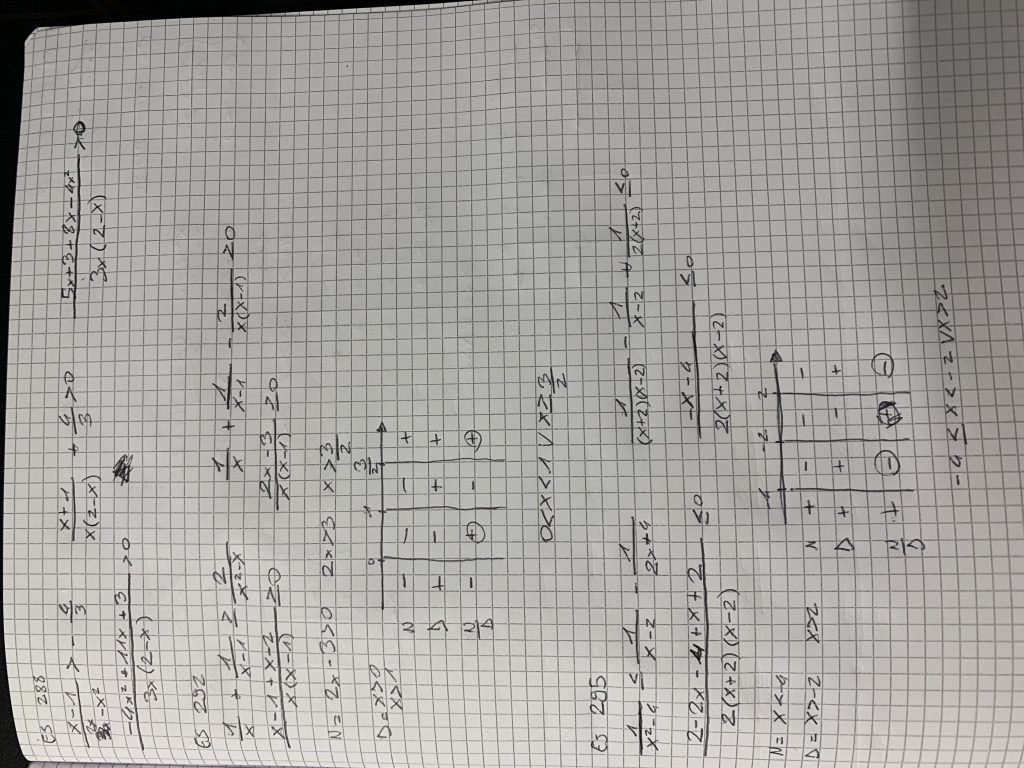 ES 288
x-1/(2x-x²) > -4/3   x+1/(x(2-x)) + 4/3 >0   (5x+3+8x-4x²)/(3x(2-x)) >0
(-4x²+11x+3)/(3x(2-x)) >0
ES 292
1/x + 1/(x-1) ≥ 2/(x²-x)   1/x + 1/(x-1) - 2/(x(x-1)) ≥0
(x-1+x-2)/(x(x-1)) ≥0   (2x-3)/(x(x-1)) ≥0
N= 2x-3>0   2x>3   x>3/2
D= x>0
x>1
0 1 3/2
N - - - +
D + - + +
N/D - + - +
0<x<1 ∨ x≥3/2
ES 295
1/(x²-4) ≤ 1/(x-2) - 1/(2x+4)   1/((x+2)(x-2)) - 1/(x-2) + 1/(2(x+2)) ≤0
(2-2x-4+x+2)/(2(x+2)(x-2)) ≤0   (-x-4)/(2(x+2)(x-2)) ≤0
N= x<-4
D= x>-2   x>2
-4 -2 2
N + - - -
D + + - +
N/D + - + -
-4≤x<-2 ∨ x>2